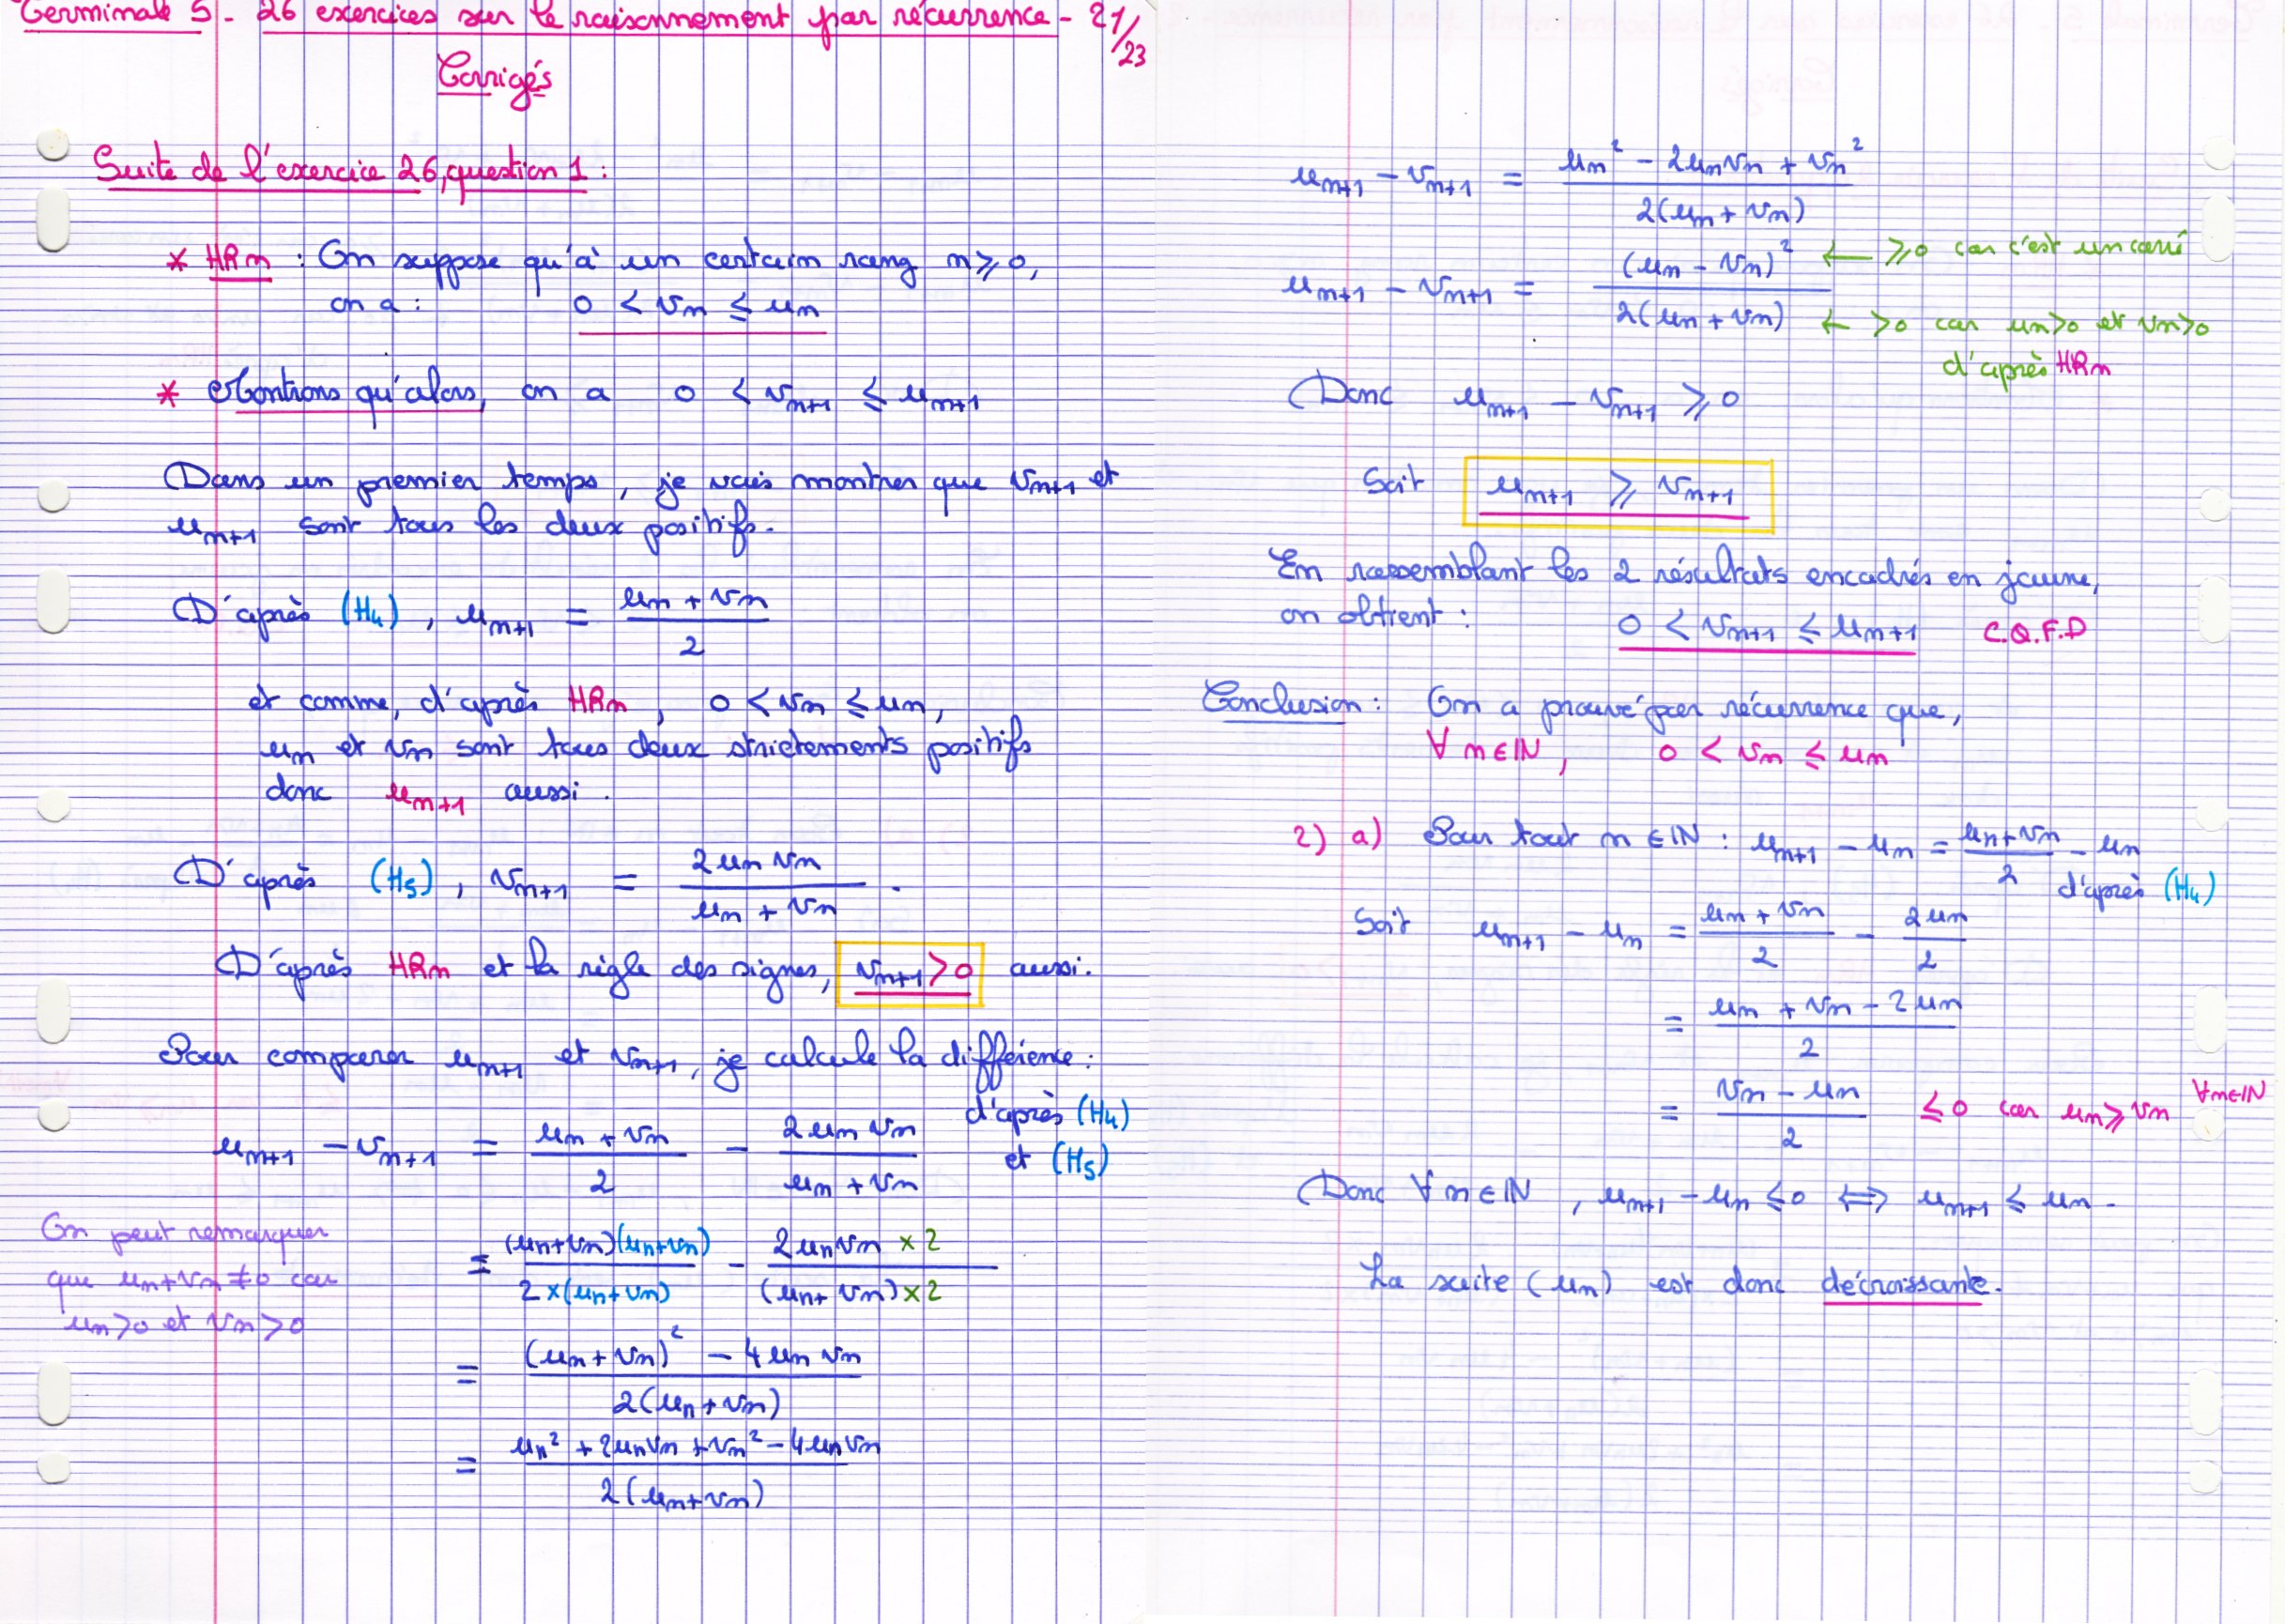 Terminale S - 26 exercices sur le raisonnement par récurrence - 21/23
Corrigés
Suite de l'exercice 26, question 1 :
* HRn : On suppose qu'à un certain rang n ⩾ 0,
on a : 0 < vn ≤ un
* Montrons qu'alors, on a 0 < vn+1 ≤ un+1
Dans un premier temps, je vais montrer que vn+1 et
un+1 sont tous les deux positifs.
D'après (H4), un+1 = (un + vn)/2
et comme, d'après HRn, 0 < vn ≤ un,
un et vn sont tous deux strictements positifs
donc un+1 aussi.
D'après (H5), vn+1 = (2 un vn)/(un + vn).
D'après HRn et la règle des signes, vn+1 > 0 aussi.
Pour comparer un+1 et vn+1, je calcule la différence :
un+1 - vn+1 = (un + vn)/2 - (2 un vn)/(un + vn) d'après (H4) et (H5)
On peut remarquer
que un+vn ≠ 0 car
un>0 et vn>0
= (un+vn)(un+vn)/(2×(un+vn)) - (2unvn × 2)/((un+vn)×2)
= ((un+vn)² - 4 un vn)/(2(un+vn))
= (un² + 2unvn + vn² - 4unvn)/(2(un+vn))
un+1 - vn+1 = (un² - 2unvn + vn²)/(2(un+vn))
un+1 - vn+1 = (un - vn)²/(2(un+vn))
← ⩾0 car c'est un carré
← >0 car un>0 et vn>0
d'après HRn
Donc un+1 - vn+1 ⩾ 0
Soit un+1 ⩾ vn+1
En rassemblant les 2 résultats encadrés en jaune,
on obtient : 0 < vn+1 ≤ un+1 C.Q.F.D
Conclusion : On a prouvé par récurrence que,
∀ n∈ℕ, 0 < vn ≤ un
2) a) Pour tout n ∈ ℕ : un+1 - un = (un+vn)/2 - un
d'après (H4)
Soit un+1 - un = (un + vn)/2 - (2 un)/2
= (un + vn - 2 un)/2
= (vn - un)/2 ≤ 0 car un ⩾ vn ∀n∈ℕ
Donc ∀ n∈ℕ, un+1 - un ≤ 0 ⟺ un+1 ≤ un.
La suite (un) est donc décroissante.